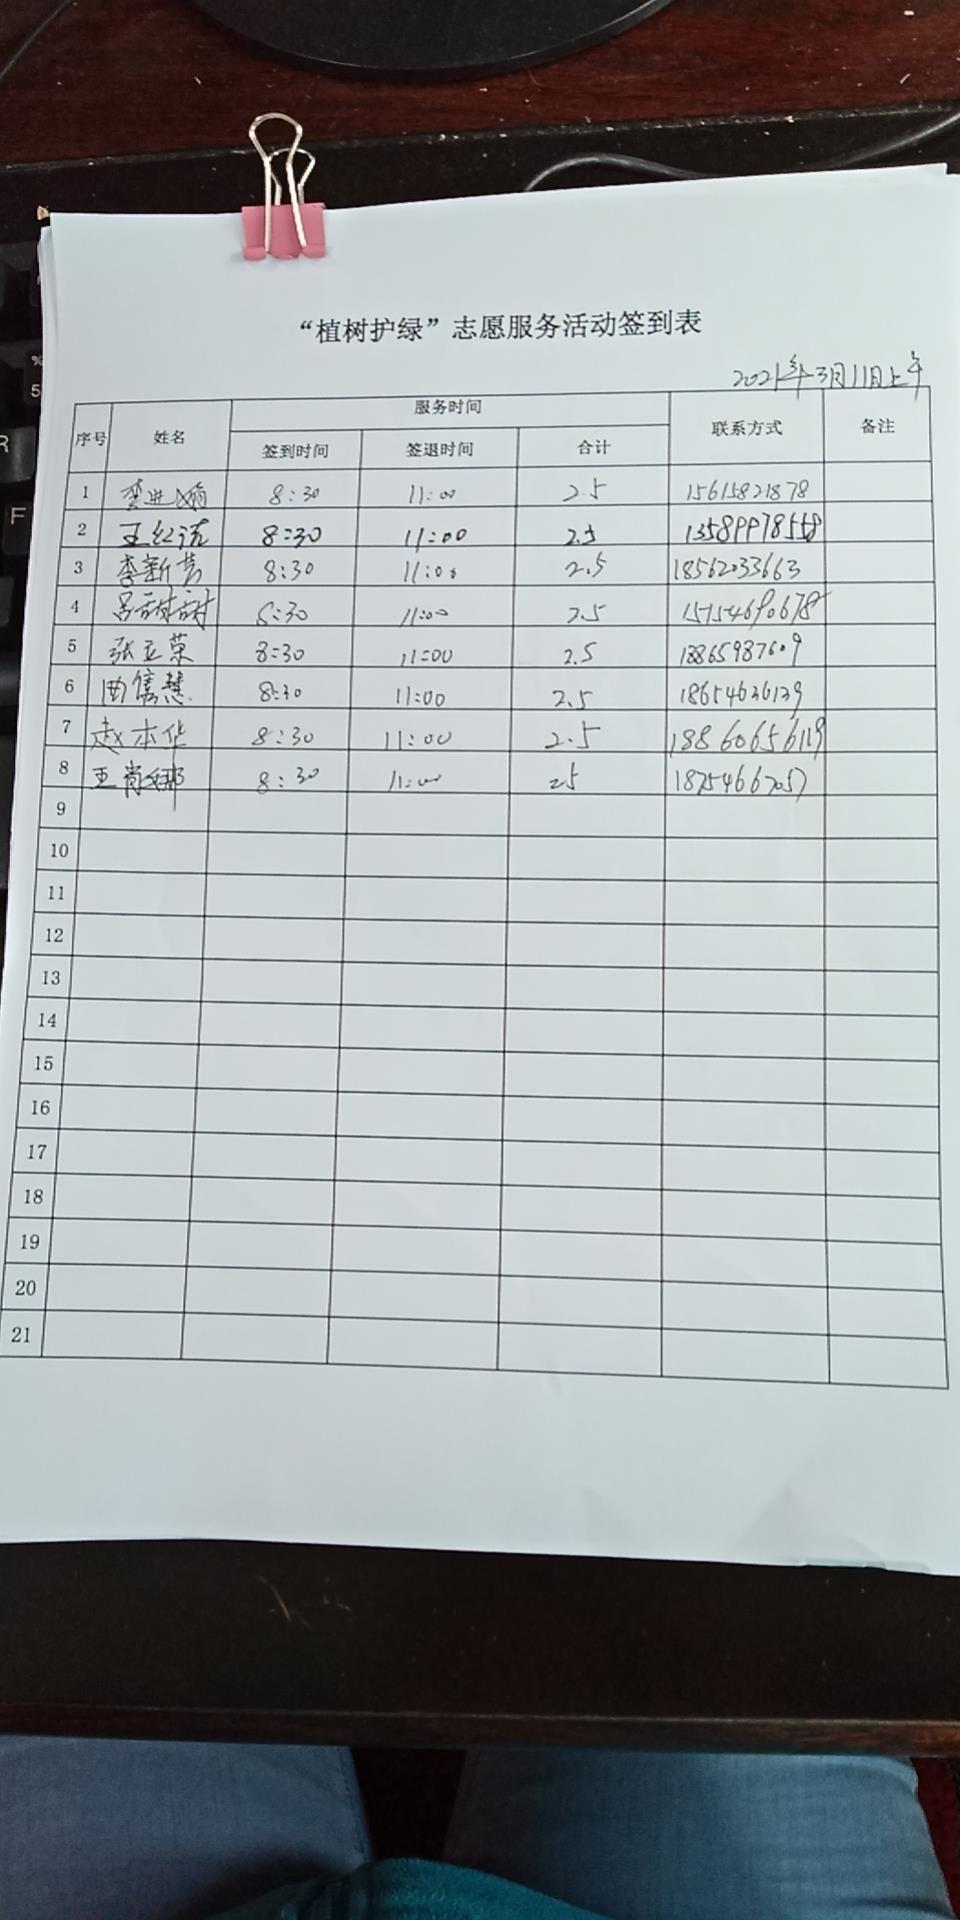 “植树护绿”志愿服务活动签到表
2021年3月11日上午
序号 姓名 服务时间 联系方式 备注
签到时间 签退时间 合计
1 8:30 11:00 2.5 15615821878
2 王红 8:30 11:00 2.5 13589978558
3 李新芳 8:30 11:00 2.5 18562033663
4 吕甜甜 8:30 11:00 2.5
5 张立荣 8:30 11:00 2.5 18865987609
6 曲隽慧 8:30 11:00 2.5
7 赵本华 8:30 11:00 2.5 18860656119
8 王肖娜 8:30 11:00 25 18754667057
9
10
11
12
13
14
15
16
17
18
19
20
21
%
5
R
F